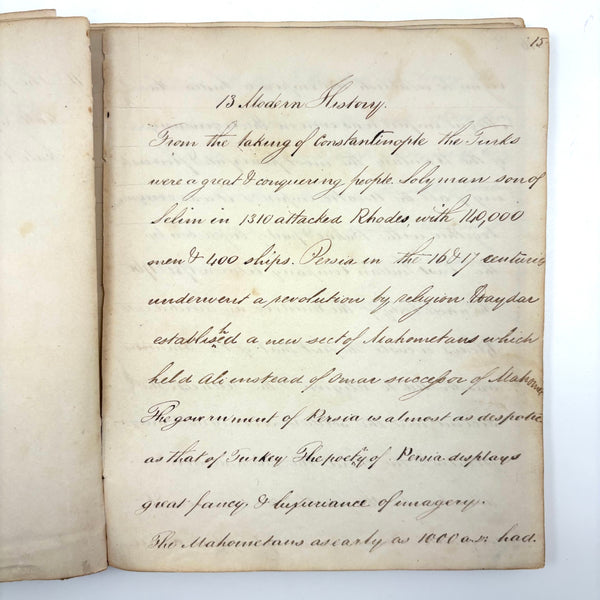 15
13 Modern History.
From the taking of Constantinople the Turks
were a great & conquering people. Solyman son of
Selim in 1310 attacked Rhodes, with 140,000
men & 400 ships. Persia in the 16 & 17 centuries
underwent a revolution by religion Haydar
established a new sect of Mahometans which
held Ali instead of Omar successor of
The government of Persia is almost as despotic
as that of Turkey The poetry of Persia displays
great fancy, & luxuriance of imagery.
The Mahometans as early as 1000 a.d. had